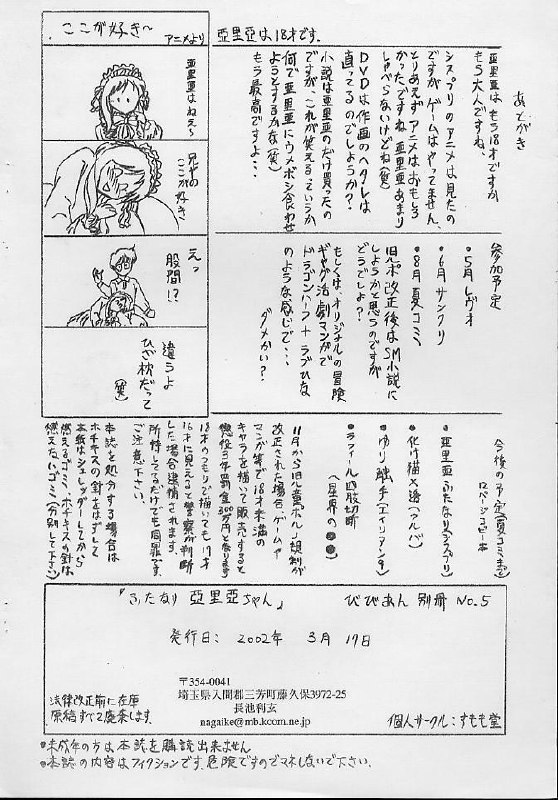 あとがき
亜里亜はもう18才ですが
もう大人ですね、
シスプリのアニメは見たの
ですがゲームはやってません、
とりあえずアニメはおもしろ
かったですね 亜里亜あまり
しゃべらないけどね(笑)
DVDは作画のヘタレは
直ってるのでしょうか?
小説は亜里亜のだけ買ったの
ですが、これが笑えるっていうか
何で亜里亜にウメボシ食わせ
ようとするかな(笑)
もう最高ですよ・・・
亞里亞は18才です。
ここが好き〜
アニメより
亜里亜はねえ〜
兄やの
ここが好き、
えっ
股間!?
違うよ
ひざ枕だって
(笑)
参加予定
•5月レヴォ
•6月サンクリ
•8月夏コミ
旧ポ改正後はSM小説に
しようかと思うのですが
どうでしょ?
もしくは、オリジナルの冒険
ギャグ活劇マンガで
ドラゴンハーフ+ラブひな
のような感じで・・・
ダメかい?
今後の予定(夏コミまで)
12ページコピー本
•亜里亜ふたなり(シスプリ)
•化け猫×透(アルバ)
•ゆり触手(エイリアン9)
•ラフィール四肢切断
(星界の●●)
11月から旧「童ポル」規制が
改正された場合、ゲームや
マンガ等で18才未満の
キャラを描いて販売すると
懲役3年罰金300万円となります
18才のつもりで描いても17才
16才に見えると警察が判断
した場合逮捕されます。
所持してるだけでも同罪です
ご注意下さい。
本誌を処分する場合は
ホチキスの針をはずして
本紙はシュレッダーしてから
燃えるゴミへ、ホチキスの針は
燃えないゴミへ(分別して下さい)
『ふたなり 亞里亞ちゃん』 びびあん 別冊 No.5
発行日: 2002年 3月 17日
〒354-0041
埼玉県入間郡三芳町藤久保3972-25
長池利玄
nagaike@mb.kcom.ne.jp
法律改正前に在庫
原稿すべて廃棄します.
個人サークル:すもも堂
•未成年の方は本誌を購読出来ません
•本誌の内容はフィクションです、危険ですのでマネしないで下さい.